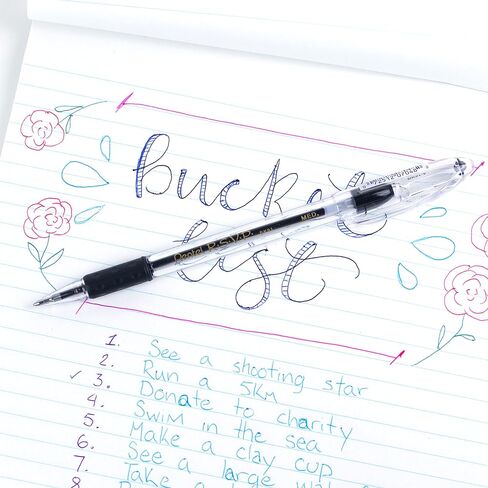 bucket
list
Pentel R.S.V.P. MED.
1. See a shooting star
2. Run a 5KM
✓ 3. Donate to charity
4. Swim in the sea
5. Make a clay cup
6. See a large
7. Take a
8.